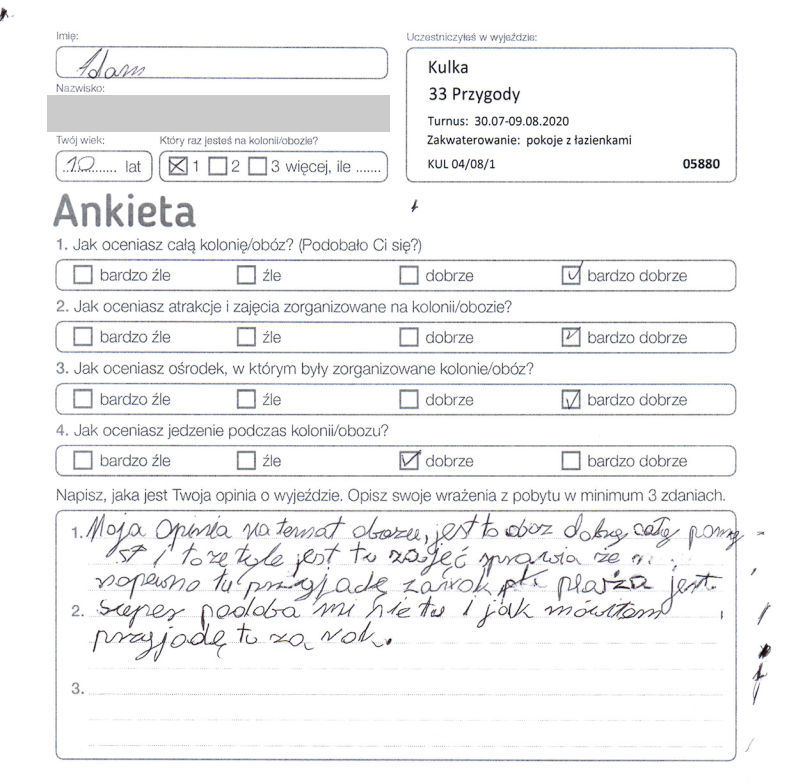 Imię:
Adam
Nazwisko:
Twój wiek:
Który raz jesteś na kolonii/obozie?
10 lat
1 2 3 więcej, ile .......
Uczestniczyłeś w wyjeździe:
Kulka
33 Przygody
Turnus: 30.07-09.08.2020
Zakwaterowanie: pokoje z łazienkami
KUL 04/08/1 05880
Ankieta
1. Jak oceniasz całą kolonię/obóz? (Podobało Ci się?)
bardzo źle źle dobrze bardzo dobrze
2. Jak oceniasz atrakcje i zajęcia zorganizowane na kolonii/obozie?
bardzo źle źle dobrze bardzo dobrze
3. Jak oceniasz ośrodek, w którym były zorganizowane kolonie/obóz?
bardzo źle źle dobrze bardzo dobrze
4. Jak oceniasz jedzenie podczas kolonii/obozu?
bardzo źle źle dobrze bardzo dobrze
Napisz, jaka jest Twoja opinia o wyjeździe. Opisz swoje wrażenia z pobytu w minimum 3 zdaniach.
1. Moja opinia na temat obozu, jest to obóz dobry cały pomy
sł i to że tyle jest tu zajęć sprawia że
napewno tu przyjadę zarok plaża jest
2. super podoba mi się tu i jak mówiłem
przyjadę tu za rok.
3.